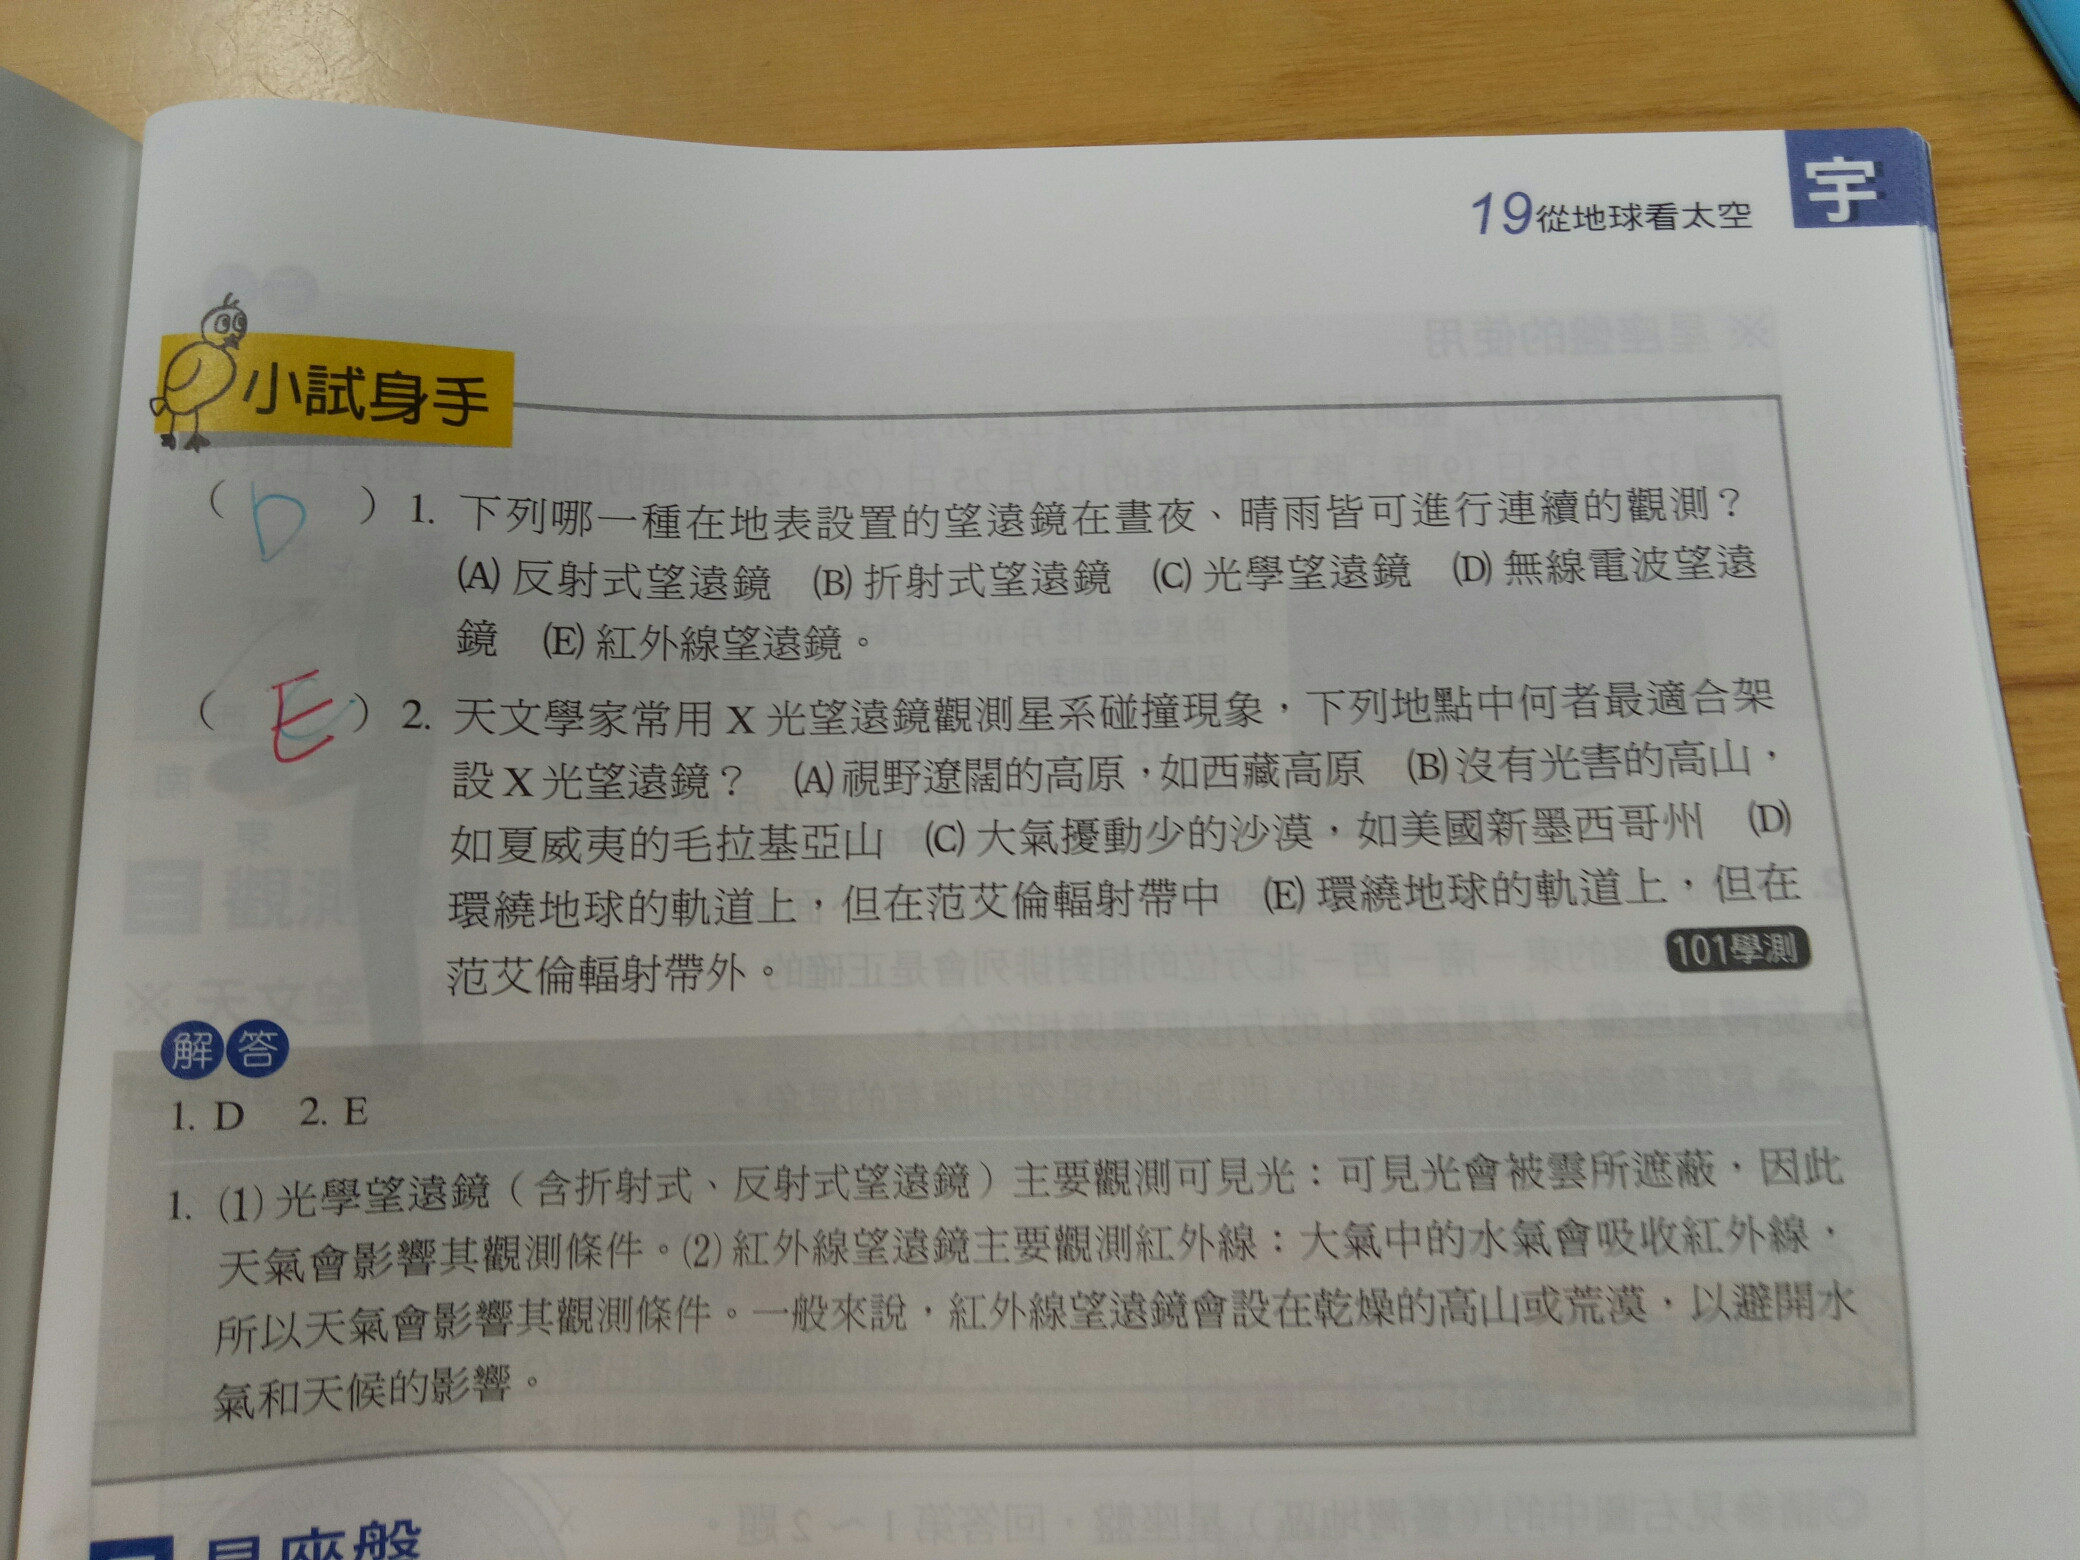 19從地球看太空
宇
小試身手
( D ) 1. 下列哪一種在地表設置的望遠鏡在晝夜、晴雨皆可進行連續的觀測？
(A) 反射式望遠鏡 (B) 折射式望遠鏡 (C) 光學望遠鏡 (D) 無線電波望遠
鏡 (E) 紅外線望遠鏡。
( E ) 2. 天文學家常用 X 光望遠鏡觀測星系碰撞現象，下列地點中何者最適合架
設 X 光望遠鏡？ (A) 視野遼闊的高原，如西藏高原 (B) 沒有光害的高山，
如夏威夷的毛拉基亞山 (C) 大氣擾動少的沙漠，如美國新墨西哥州 (D)
環繞地球的軌道上，但在范艾倫輻射帶中 (E) 環繞地球的軌道上，但在
范艾倫輻射帶外。 101學測
解答
1. D 2. E
1. (1) 光學望遠鏡（含折射式、反射式望遠鏡）主要觀測可見光：可見光會被雲所遮蔽，因此
天氣會影響其觀測條件。(2) 紅外線望遠鏡主要觀測紅外線：大氣中的水氣會吸收紅外線，
所以天氣會影響其觀測條件。一般來說，紅外線望遠鏡會設在乾燥的高山或荒漠，以避開水
氣和天候的影響。
星座盤